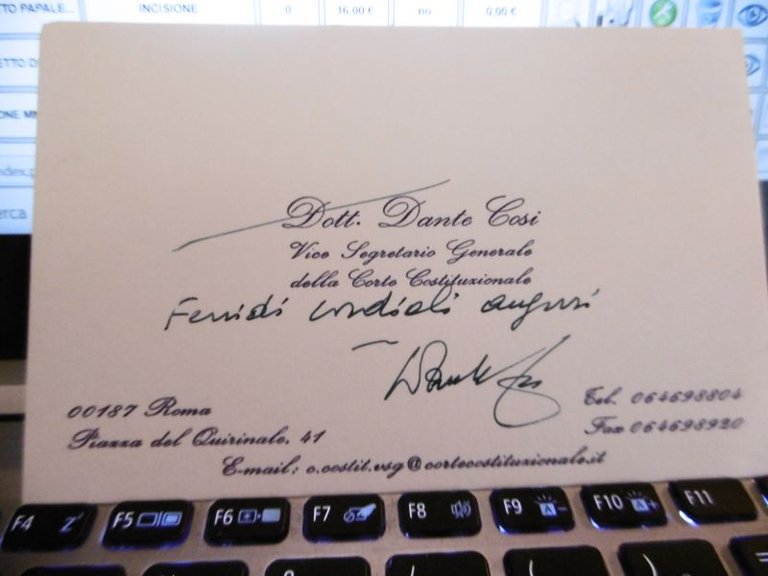 TTO PAPALE... INCISIONE 0 16,00 € no 0,00 €
Dott. Dante Cosi
Vice Segretario Generale
della Corte Costituzionale
Fervidi cordiali auguri
00187 Roma
Tel. 064698804
Piazza del Quirinale, 41
Fax 064698920
E-mail: c.costit.vsg@cortecostituzionale.it
F4 Zz F5 F6 F7 F8 F9 A F10 A F11